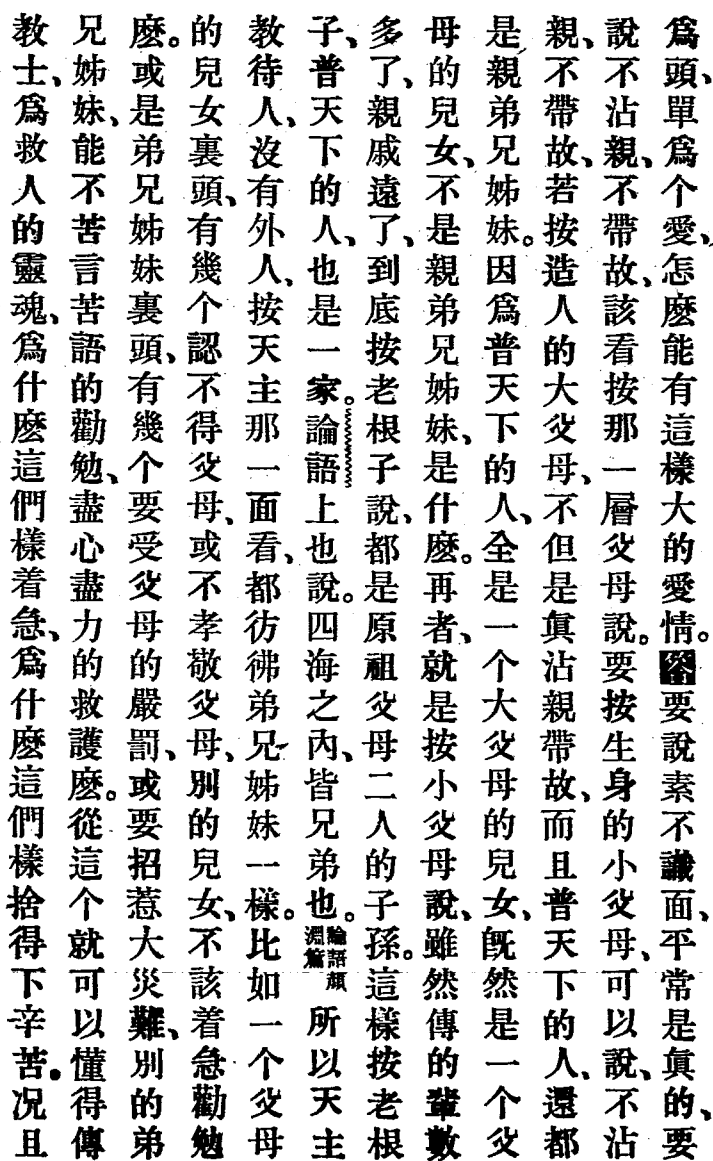 爲頭、單爲个愛、怎麽能有這樣大的愛情。答要說素不識面、平常是眞的、要
說不沾親、不帶故、該看按那一層父母說。要按生身的小父母、可以說、不沾
親、不帶故、若按造人的大父母、不但是眞沾親帶故、而且普天下的人、還都
是親弟兄姊妹。因爲普天下的人、全是一个大父母的兒女、旣然是一个父
母的兒女、不是親弟兄姊妹、是什麽。再者、就是按小父母說、雖然傳的輩數
多了、親戚遠了、到底按老根子說、都是原祖父母二人的子孫。這樣按老根
子、普天下的人、也是一家。論語上也說。四海之內、皆兄弟也。論語顏淵篇所以天主
教待人、沒有外人、按天主那一面看、都彷彿弟兄姊妹一樣。比如一个父母
的兒女裏頭、有幾个認不得父母、或不孝敬父母、別的兒女、不該着急勸勉
麽。或是弟兄姊妹裏頭、有幾个要受父母的嚴罰、或要招惹大災難、別的弟
兄姊妹、能不苦言苦語的勸勉、盡心盡力的救護麽。從這个就可以懂得傳
教士、爲救人的靈魂、爲什麽這們樣着急、爲什麽這們樣捨得下辛苦。况且